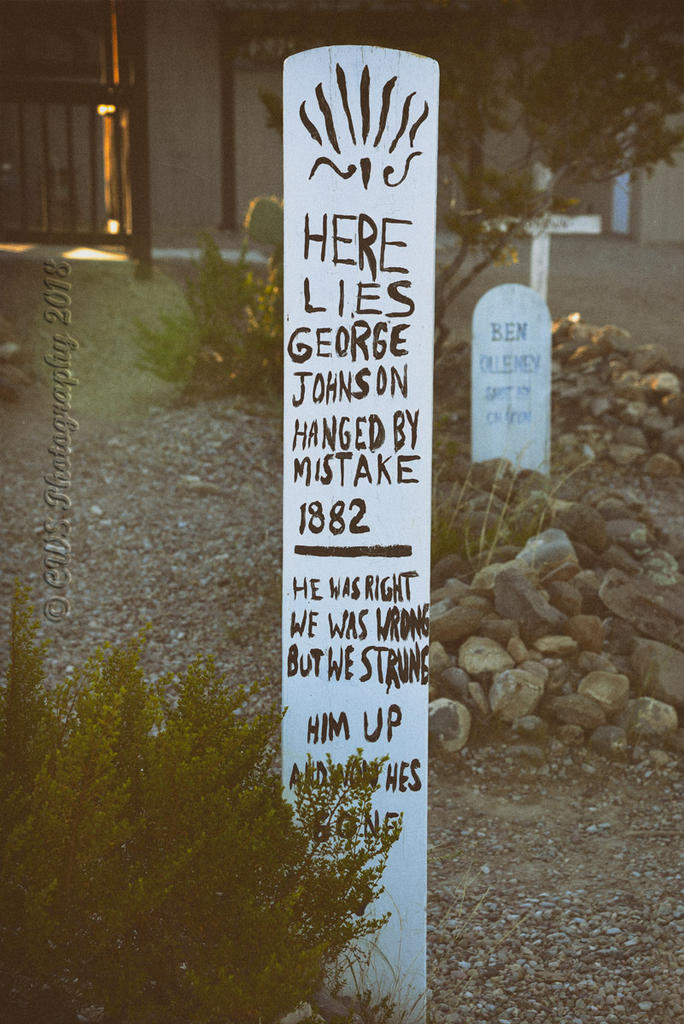 HERE
LIES
GEORGE
JOHNSON
HANGED BY
MISTAKE
1882
HE WAS RIGHT
WE WAS WRONG
BUT WE STRUNG
HIM UP
AND NOW HES
GONE
BEN
© CWS Photography 2018